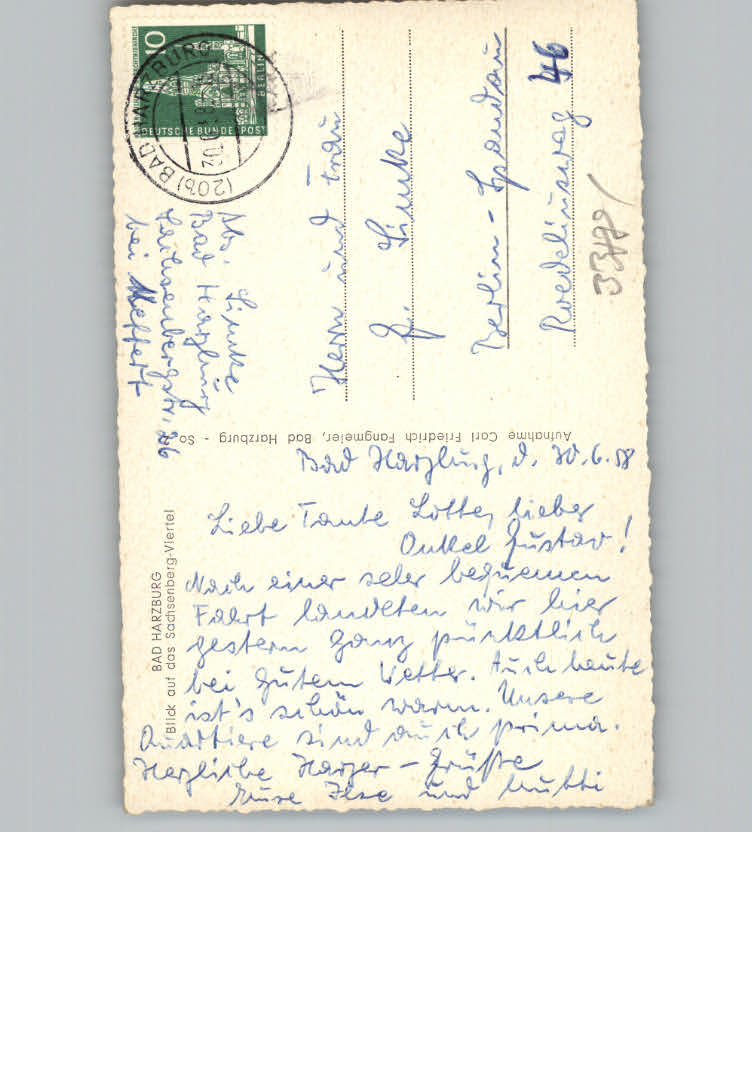 BAD HARZBURG
Blick auf das Sachsenberg-Viertel
Bad Harzburg, d. 30.6.58
Liebe Tante Lotte, lieber
Onkel Gustav!
Nach einer sehr bequemen
Fahrt landeten wir hier
gestern ganz pünktlich
bei gutem Wetter. Auch heute
ist's schön warm. Unsere
Quartiere sind auch prima.
Herzliche Harzer-Grüße
Eure Ilse und Mutti
Aufnahme Carl Friedrich Fangmeier, Bad Harzburg - So
Abs. Lincke
Bad Harzburg
Sachsenbergstr. 26
bei Meffert
10
DEUTSCHE BUNDESPOST
BERLIN
(20b) BAD HARZBURG
Herrn und Frau
G. Lincke
Berlin-Spandau
Roedeliusweg 46